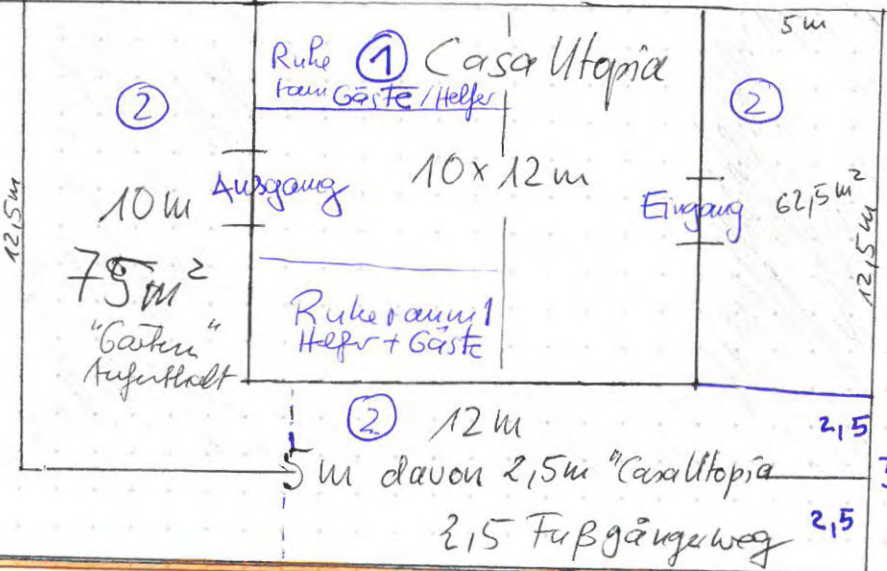 5m
Ruhe ① Casa Utopia
raum Gäste/Helfer
②
②
12,5m
10m
Ausgang
10 x 12 m
Eingang
62,5m²
12,5m
75m²
"Garten"
Aufenthalt
Ruheraum 1
Helfer + Gäste
② 12m
2,5
5 m davon 2,5m "Casa Utopia
2,5 Fußgängerweg
2,5